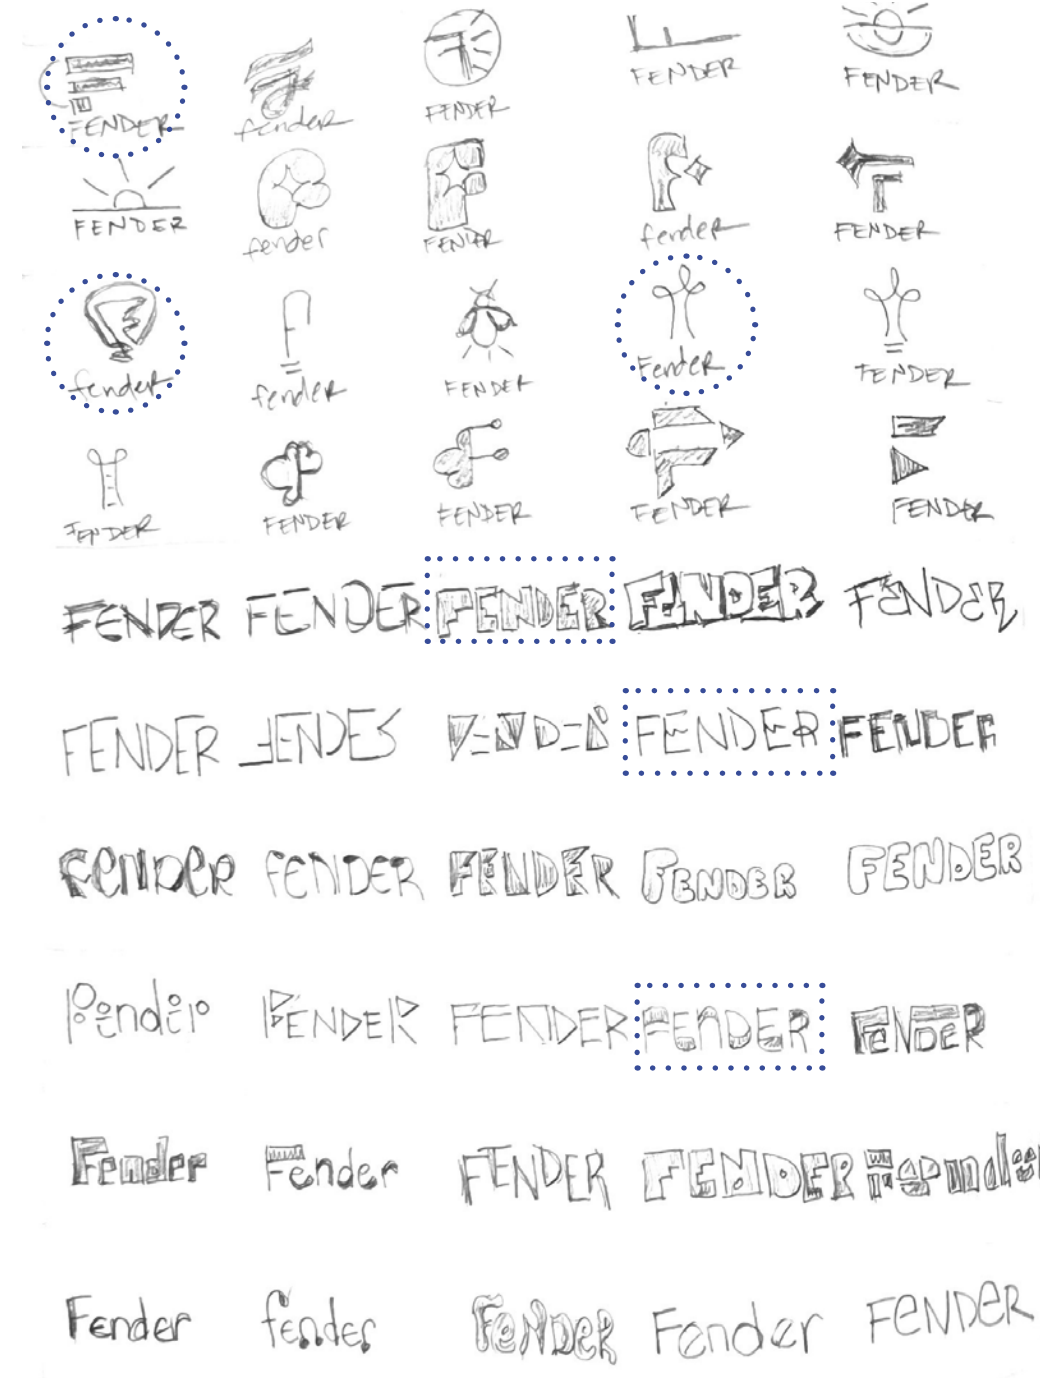 FENDER fender FENDER FENDER FENDER
FENDER fender FENDER fender FENDER
fender fender FENDER Fender FENDER
FENDER FENDER FENDER FENDER FENDER
FENDER FENDER FENDER FENDER FENDER
FENDER FENDER FENDER FENDER FENDER
FeNDeR feNDER FENDER FENDER FENDER
Fender FENDER FENDER FENDER FeNDeR
Fender Fender FENDER FENDER Fender
Fender fender FeNDeR Fender FeNDeR